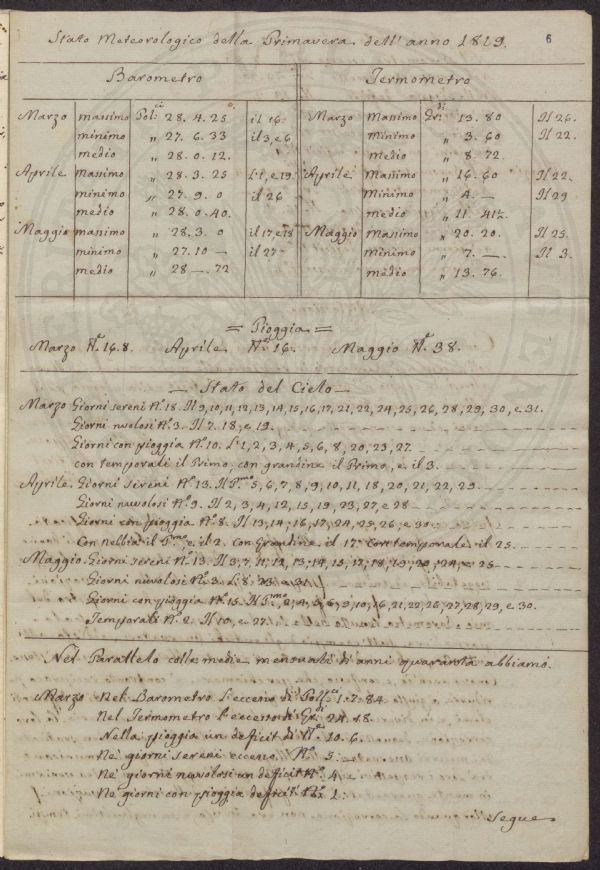 Stato Meteorologico della Primavera dell' anno 1819. 6
Barometro Termometro
Marzo massimo Pol: 28. 4. 25 il 16. Marzo Massimo Gr: di 13. 80 Il 26.
minimo „ 27. 6. 33 il 3, e 6 minimo „ 3. 60 Il 22.
medio „ 28. 0. 12. medio „ 8. 72
Aprile massimo „ 28. 3. 25 L'1, e 19 Aprile Massimo „ 16. 60 Il 22.
minimo „ 27. 9. 0 il 26 Minimo „ 4. — Il 29
medio „ 28. 0. 40. medio „ 11. 41
Maggio massimo „ 28. 3. 0 il 17 e 18 Maggio Massimo „ 20. 20. Il 25.
minimo „ 27. 10 — il 27 minimo „ 7. —. Il 3.
medio „ 28 —. 72 medio „ 13. 76.
= Pioggia =
Marzo N.º 16. 8. Aprile N.º 16. Maggio N.º 38.
— Stato del Cielo —
Marzo Giorni sereni N.º 18. Il 9, 10, 11, 12, 13, 14, 15, 16, 17, 21, 22, 24, 25, 26, 28, 29, 30, e 31.
Giorni nuvolosi N.º 3. Il 7. 18, e 19.
Giorni con pioggia N.º 10. L'1, 2, 3, 4, 5, 6, 8, 20, 23, 27
con temporali il Primo, con grandine il Primo, e il 3.
Aprile Giorni sereni N.º 13. Il P.mo 5, 6, 7, 8, 9, 10, 11, 18, 20, 21, 22, 29
Giorni nuvolosi N.º 9. Il 2, 3, 4, 12, 15, 19, 23, 27, e 28
Giorni con pioggia N.º 8. Il 13, 14, 16, 17, 24, 25, 26, e 30
Con nebbia il P.mo e il 2. con Grandine il 17. Con temporale il 25
Maggio Giorni sereni N.º 13. Il 3, 7, 11, 12, 13, 14, 15, 17, 18, 19, 20, 24, e 25
Giorni nuvolosi N.º 3. L'8, 23 e 31
Giorni con pioggia N.º 15. Il P.mo, 2, 4, 5, 6, 9, 10, 16, 21, 22, 26, 27, 28, 29, e 30.
Temporali N.º 2. Il 10, e 27
Nel Paralello colle medie mensuali di anni quaranta abbiamo.
Marzo Nel Barometro l'eccesso di Poll. 1. 7. 84.
Nel Termometro l'eccesso di Gr. 24. 18.
Nella pioggia un deficit di N.º 10. 6.
Ne' giorni sereni eccesso N.º 5
Ne' giorni nuvolosi un deficit N.º 4
Ne giorni con pioggia deficit N.º 1:
Segue